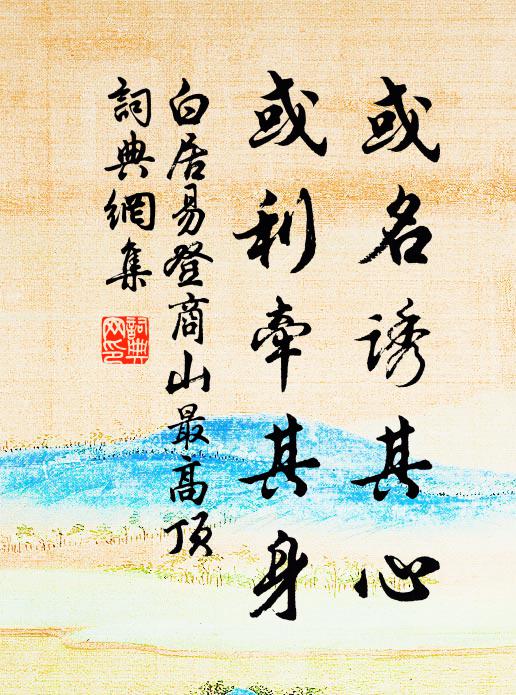 或名誘其心
或利牽其身
白居易登商山最高頂
詞典網集
詞典
网印